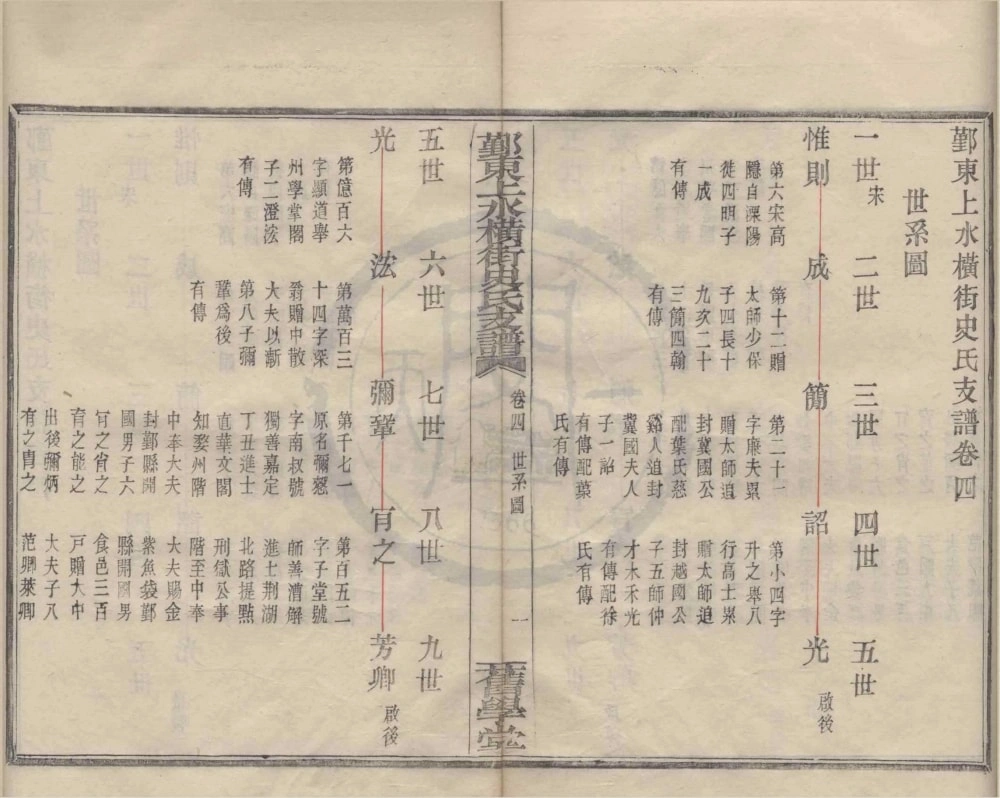 鄞東上水橫街史氏支譜卷四
世系圖
一世宋 二世 三世 四世 五世
惟則 成 簡 詔 光 啟後
第六宋高
隱自溧陽
徙四明子
一成
有傳
第十二贈
太師少保
子四長十
九亥二十
三簡四翰
有傳
第二十一
字廉夫累
贈太師追
封冀國公
配葉氏慈
谿人追封
冀國夫人
子一詔
有傳配葉
氏有傳
第小四字
升之舉八
行高士累
贈太師追
封越國公
子五師仲
才木禾光
有傳配徐
氏有傳
鄞東上水橫街史氏支譜
卷四 世系圖
一
舊學堂
五世 六世 七世 八世 九世
光 浤 彌鞏 肯之 芳卿 啟後
第億百六
字顯道舉
州學掌閣
子二澄浤
有傳
第萬百三
十四字深
翁贈中散
大夫以漸
第八子彌
鞏為後
有傳
第千七一
原名彌愨
字南叔號
獨善嘉定
丁丑進士
直華文閣
知婺州階
中奉大夫
封鄞縣開
國男子六
肯之省之
育之能之
出後彌炳
有之胄之
第百五二
字子堂號
師善漕解
進士荆湖
北路提點
刑獄公事
階至中奉
大夫賜金
紫魚袋鄞
縣開國男
食邑三百
戸贈大中
大夫子八
范卿萊卿